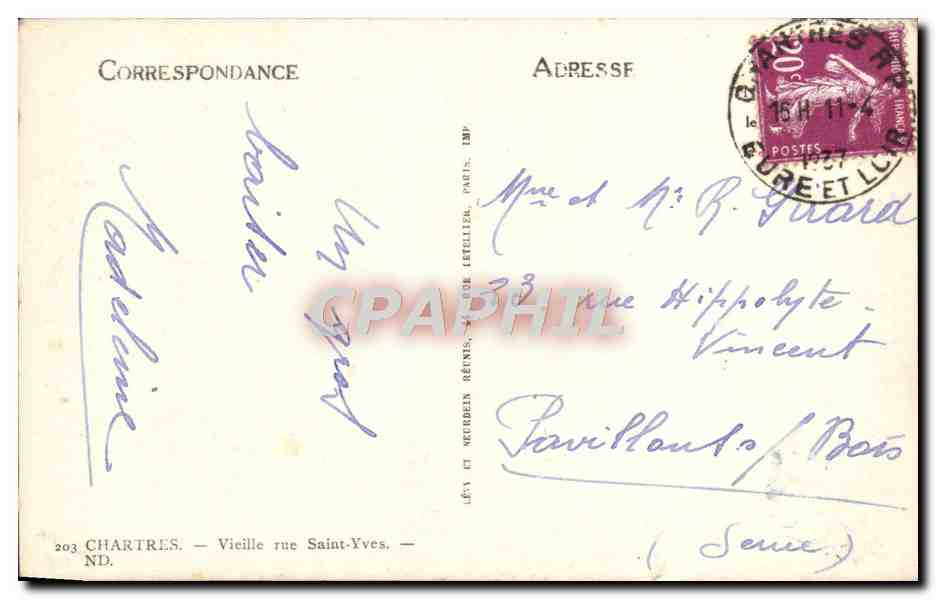 CORRESPONDANCE
ADRESSE
CHARTRES R.P.
16 H 11-4
1937
EURE ET LOIR
20c
POSTES
Un gros
baiser
Madeleine
Mme et Mr R. Girard
33 rue Hippolyte-
Vincent
Pavillons s/ Bois
(Seine)
LÉVY ET NEURDEIN RÉUNIS, 44 RUE LETELLIER, PARIS. IMP
CPAPHIL
203 CHARTRES. — Vieille rue Saint-Yves. —
ND.